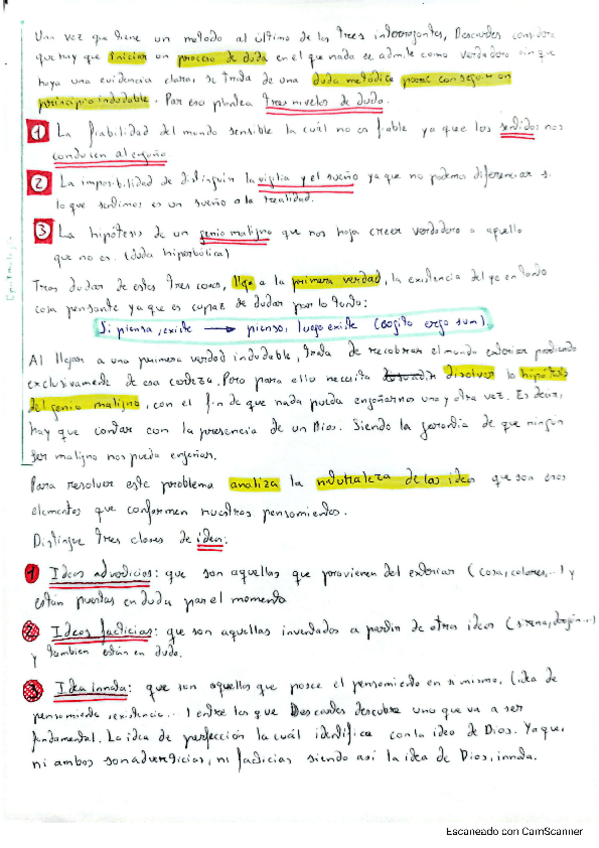 Una vez que tiene un metodo al último de los tres interrogantes, Descartes considera
que hay que iniciar un proceso de duda en el que nada se admite como verdadero sin que
haya una evidencia clara, se trata de una duda metódica para conseguir un
principio indudable. Por eso plantea tres niveles de duda.
1 La fiabilidad del mundo sensible la cuál no es fiable ya que los sentidos nos
conducen al engaño
2 La imposibilidad de distinguir la vigilia y el sueño ya que no podemos diferenciar si
lo que sentimos es un sueño o la realidad.
3 La hipótesis de un genio maligno que nos haga creer verdadero a aquello
que no es. (duda hiperbólica)
Tras dudar de estas tres cosas, llega a la primera verdad, la existencia del yo en tanto
cosa pensante ya que es capaz de dudar por lo tanto:
Si piensa, existe → pienso, luego existe (cogito ergo sum)
Al llegar a una primera verdad indudable, trata de recobrar el mundo exterior partiendo
exclusivamente de esa certeza. Pero para ello necesita disolver la hipótesis
del genio maligno, con el fin de que nada pueda engañarnos una y otra vez. Es decir,
hay que contar con la presencia de un Dios. Siendo la garantía de que ningún
ser maligno nos pueda engañar.
Para resolver este problema analiza la naturaleza de las ideas que son esos
elementos que conforman nuestros pensamientos.
Distingue tres clases de idea:
1 Ideas adventicias: que son aquellas que provienen del exterior (cosa, colores,...) y
están puestas en duda por el momento
2 Ideas facticias: que son aquellas inventadas a partir de otras ideas (sirena, dragón...)
y tambien están en duda.
3 Idea innata: que son aquellas que posee el pensamiento en si mismo, (idea de
pensamiento, existencia...) entre las que Descartes descubre una que va a ser
fundamental. La idea de perfección la cuál identifica con la idea de Dios. Ya que,
ni ambos son adventicias, ni facticias siendo así la idea de Dios, innata.
Escaneado con CamScanner